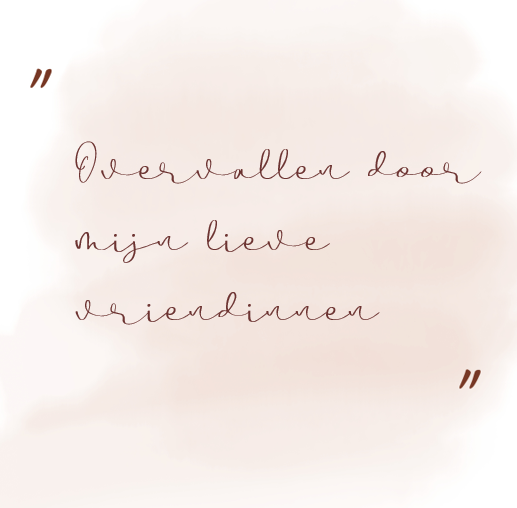 "
Overvallen door
mijn lieve
vriendinnen
"